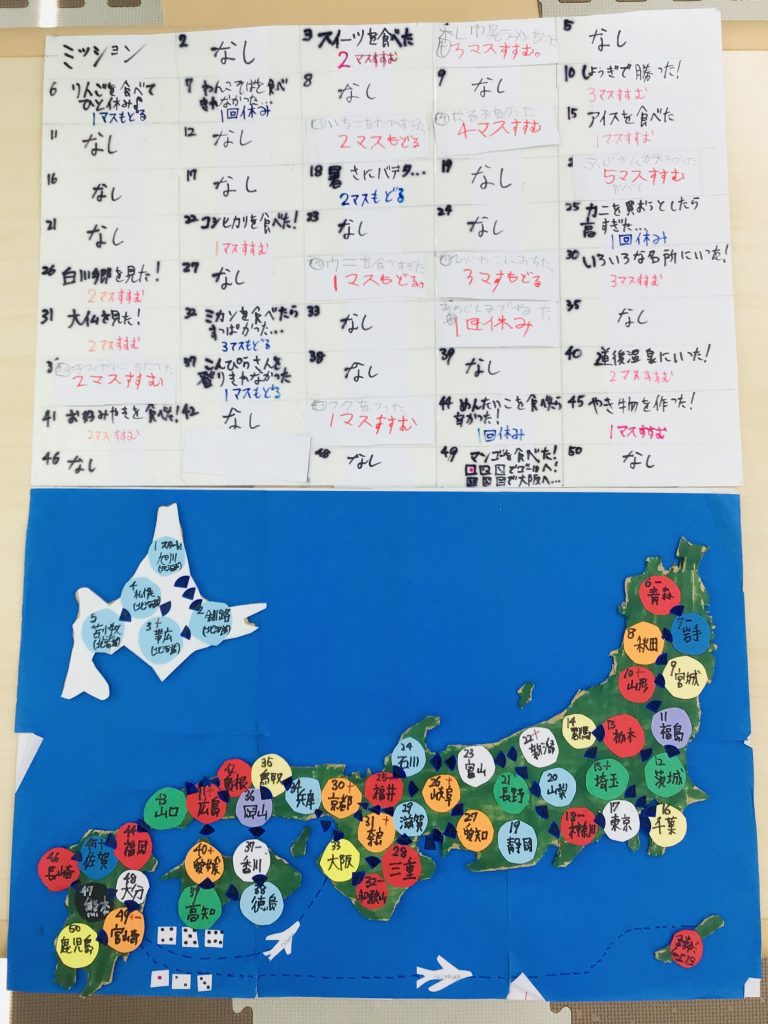 ミッション
2 なし
3 スイーツを食べた
2マスすすむ
3マスすすむ。
5 なし
6 りんごを食べて
ひと休み♪
1マスもどる
7 わんこそばを食べ
きれなかった…
1回休み
8 なし
9 なし
10 しょうぎで勝った!
3マスすすむ
11 なし
12 なし
2マスもどる
4マスすすむ
15 アイスを食べた
1マスすすむ
16 なし
17 なし
18 暑さにバテタ…
2マスもどる
19 なし
5マスすすむ
21 なし
22 コシヒカリを食べた!
1マスすすむ
23 なし
24 なし
25 カニを買おうとしたら
高すぎた…
1回休み
26 白川郷を見た!
2マスすすむ
27 なし
ウニを食べすぎた
1マスもどる
3マすもどる
30 いろいろな名所にいった!
3マスすすむ
31 大仏を見た!
2マスすすむ
32 ミカンを食べたら
すっぱかった…
3マスもどる
33 なし
1回休み
35 なし
2マスすすむ
37 こんぴらさんを
登りきれなかった
1マスもどる
38 なし
39 なし
40 道後温泉にいた!
2マスすすむ
41 お好みやきを食べた!
2マスすすむ
42 なし
フグをつった
1マスすすむ
44 めんたいこを食べたら
辛かった!
1回休み
45 やき物を作った!
1マスすすむ
46 なし
48 なし
49 マンゴを食べた!
でゴールへ!
で大阪へ…
50 なし
1 スタート
旭川
(北海道)
4 札幌
(北海道)
2 釧路
(北海道)
5 苫小牧
(北海道)
3+ 帯広
(北海道)
6- 青森
7- 岩手
8 秋田
9 宮城
10+ 山形
11 福島
12 茨城
13 栃木
14 群馬
15+ 埼玉
16 千葉
17 東京
18- 神奈川
19 静岡
20 山梨
21 長野
22+ 新潟
23 富山
24 石川
25- 福井
26+ 岐阜
27- 愛知
28 三重
29 滋賀
30+ 京都
31+ 奈良
32- 和歌山
33 大阪
34 兵庫
35 鳥取
36 岡山
38 徳島
39- 香川
40+ 愛媛
41+ 広島
42 島根
43 山口
44 福岡
45+ 佐賀
46 長崎
47 熊本
48 大分
49+- 宮崎
50 鹿児島
37 高知